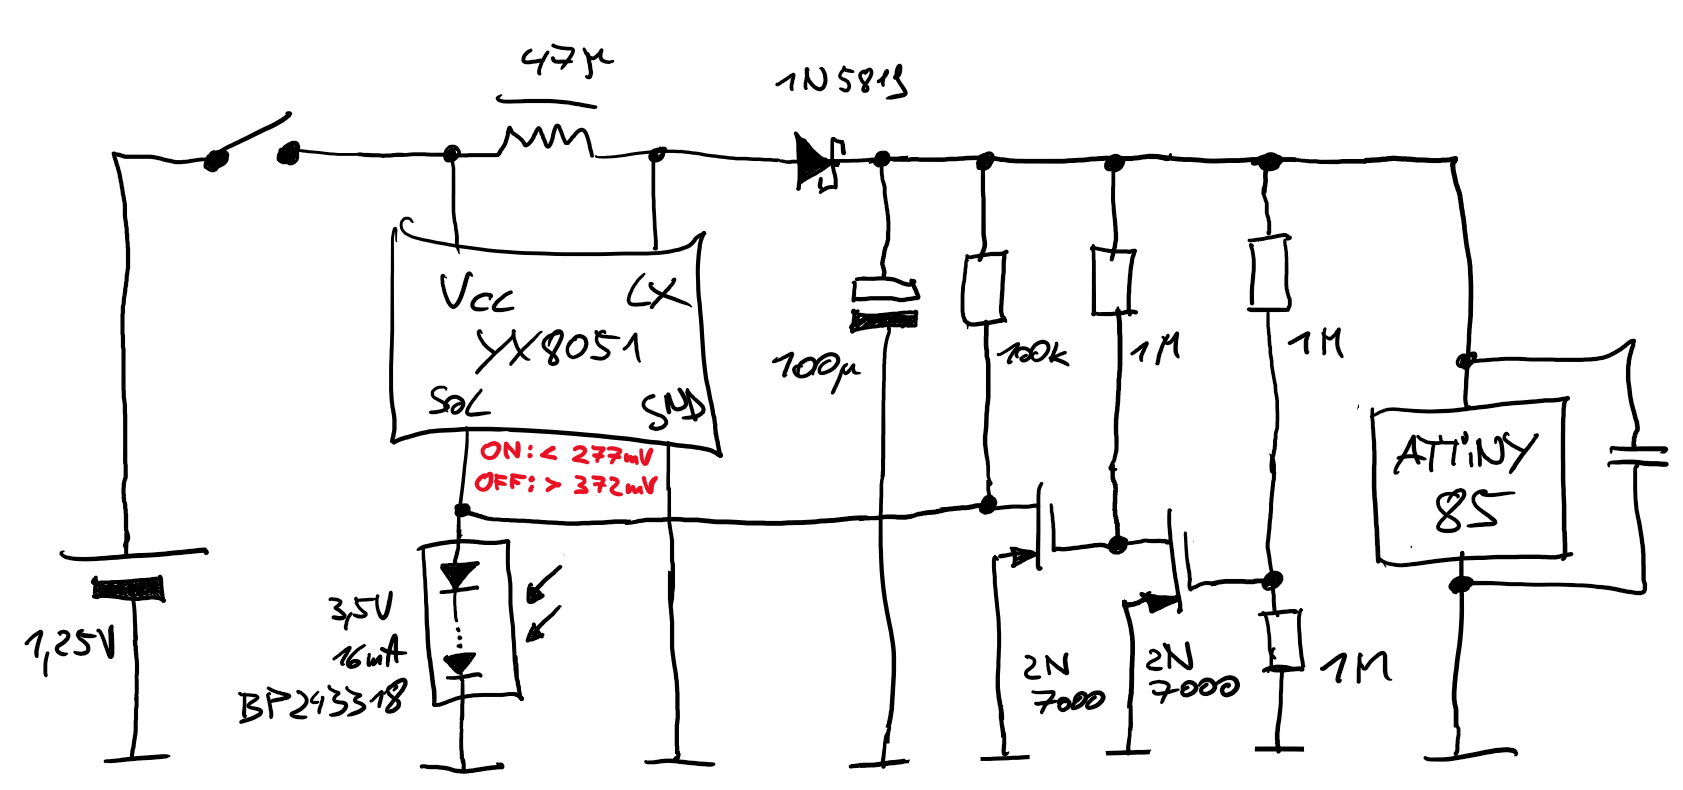 47µ
1N5819
VCC LX
YX8051
SOL GND
ON: < 277mV
OFF: > 372mV
100µ
100k
1M
1M
ATTiNY
85
1,25V
3,5V
16mA
BP243318
2N
7000
2N
7000
1M